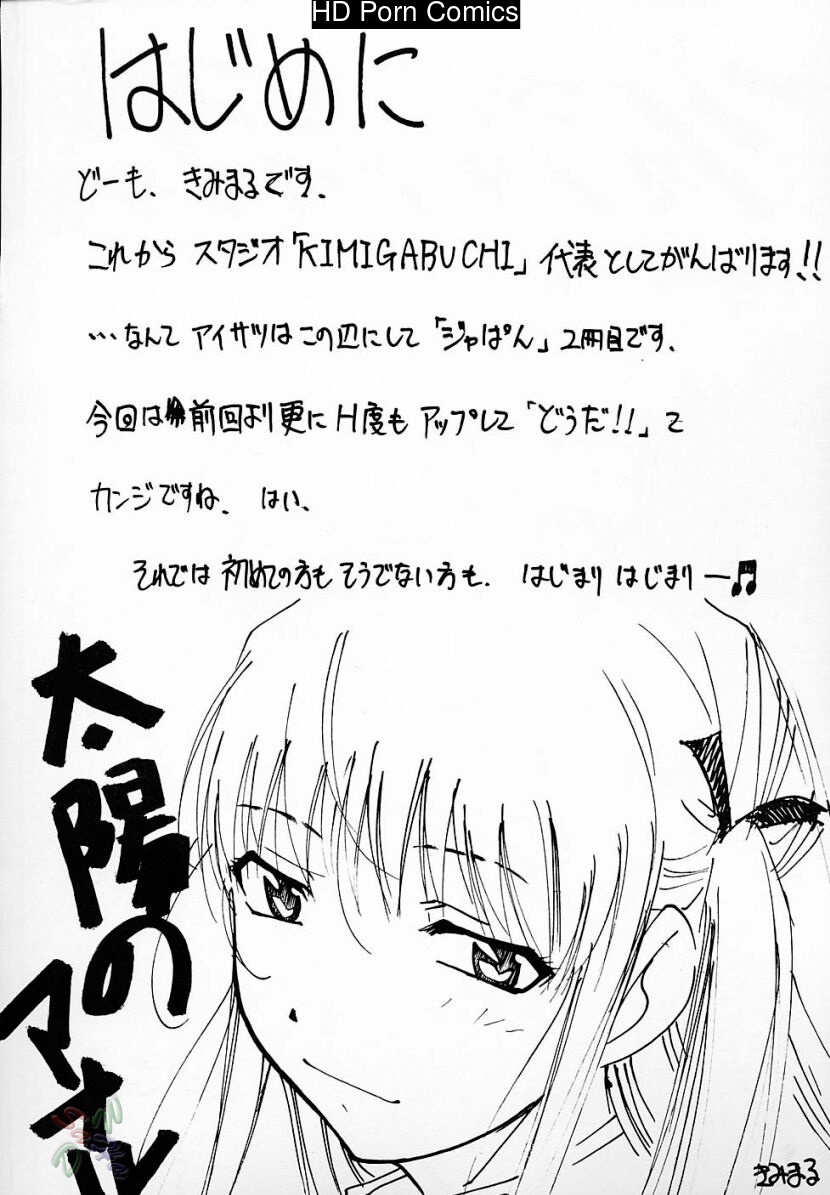 HD Porn Comics
はじめに
どーも、きみまるです。
これから スタジオ「KIMIGABUCHI」代表としてがんばります!!
…なんて アイサツはこの辺にして「ジャぱん」2冊目です。
今回は前回より更にH度もアップして「どうだ!!」て
カンジですね、はい、
それでは 初めての方も そうでない方も、 はじまり はじまりー♫
太陽の
マオル
きみまる